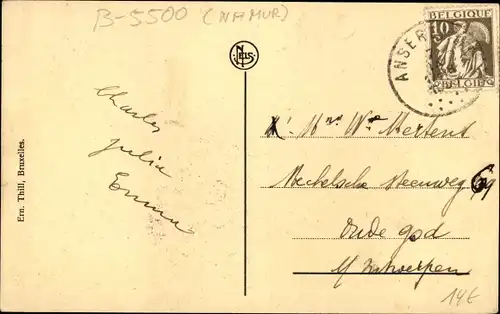 B-5500 (NAMUR)
BELGIQUE
10
BELGIË
ANSER
NELS
Charles
Julia
Emma
Ern. Thill, Bruxelles.
Wwe Mertens
Mechelsche steenweg 69
Oude god
by Antwerpen
14€